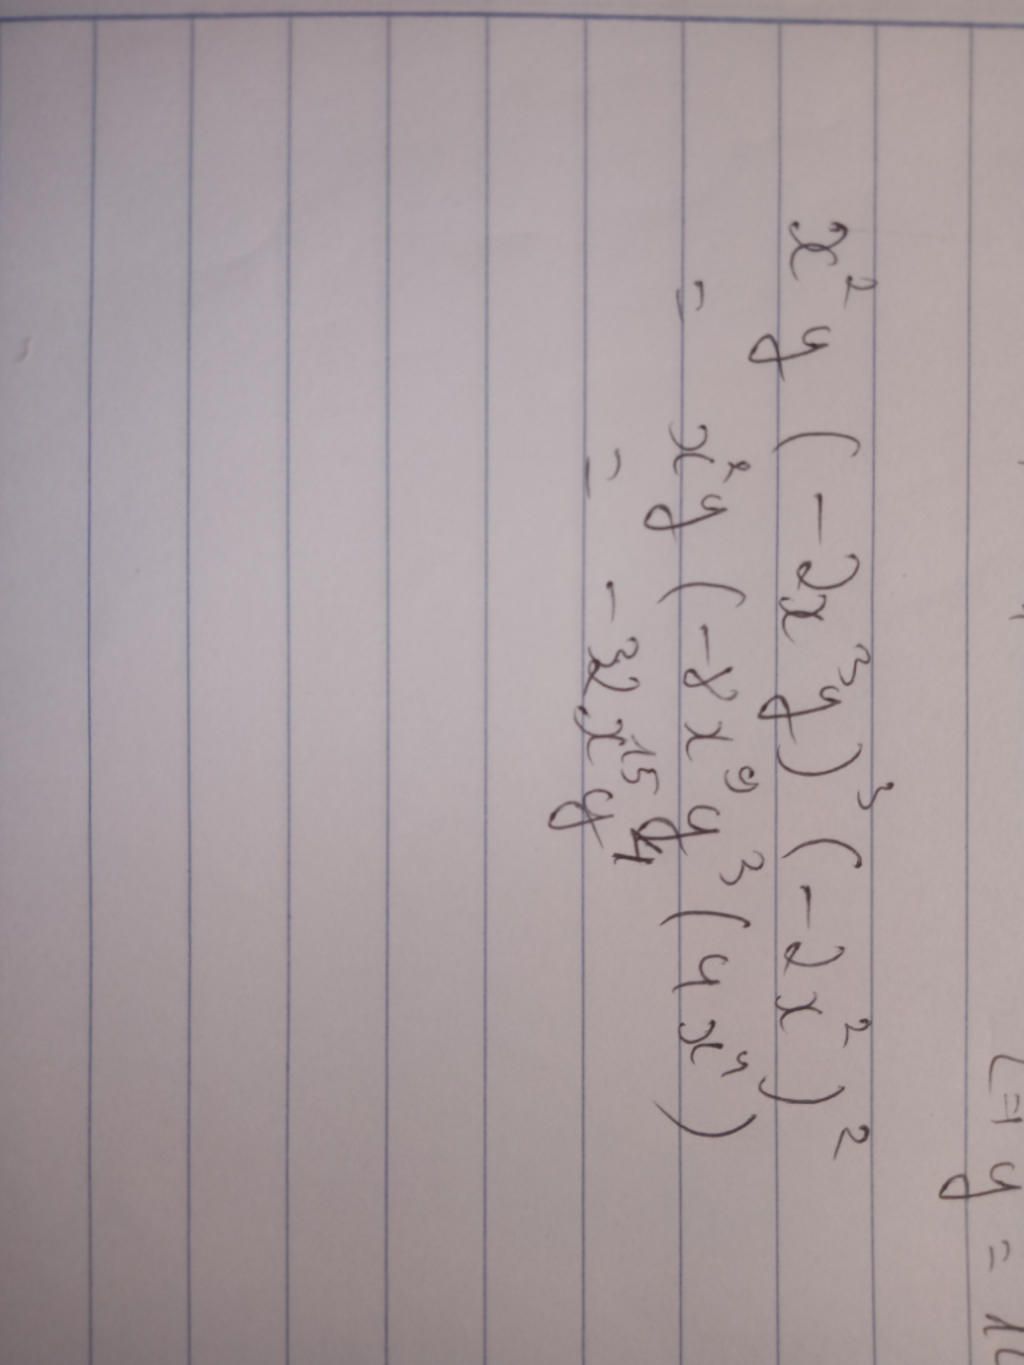 x² y (-2x³y)³ (-2x²)²
= x²y (-8x⁹y³(4x⁴)
= -32x¹⁵y⁴